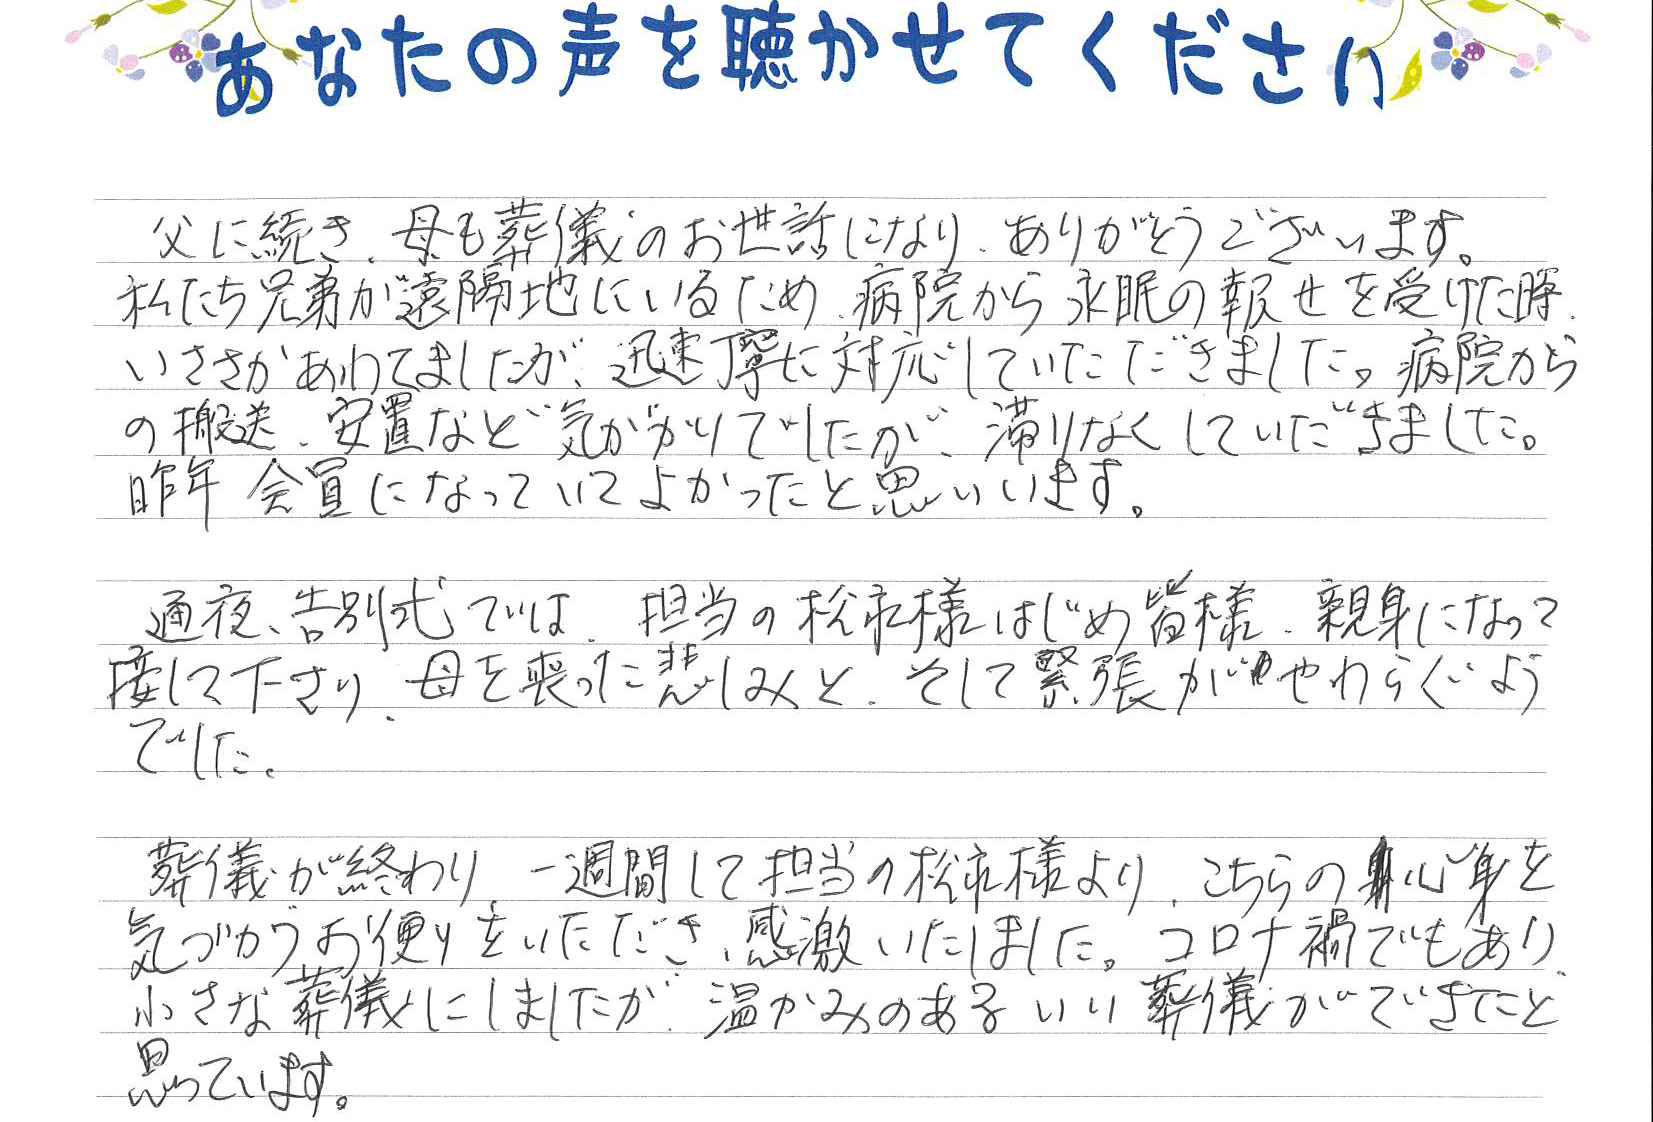 あなたの声を聴かせてください
父に続き、母も葬儀のお世話になり、ありがとうございます。
私たち兄弟が遠隔地にいるため、病院から永眠の報せを受けた時、
いささかあわてましたが、迅速丁寧に対応していただきました。病院から
の搬送、安置など気がかりでしたが、滞りなくしていだきました。
昨年 会員になっていてよかったと思いいます。
通夜、告別式では、担当の松永様はじめ皆様、親身になって
接して下さり、母を喪った悲しみと、そして緊張がやわらぐよう
でした。
葬儀が終わり 一週間して担当の松永様より、こちらの心身を
気づかうお便りをいただき、感激いたしました。コロナ禍でもあり、
小さな葬儀にしましたが、温かみのあるいい葬儀ができたと
思っています。